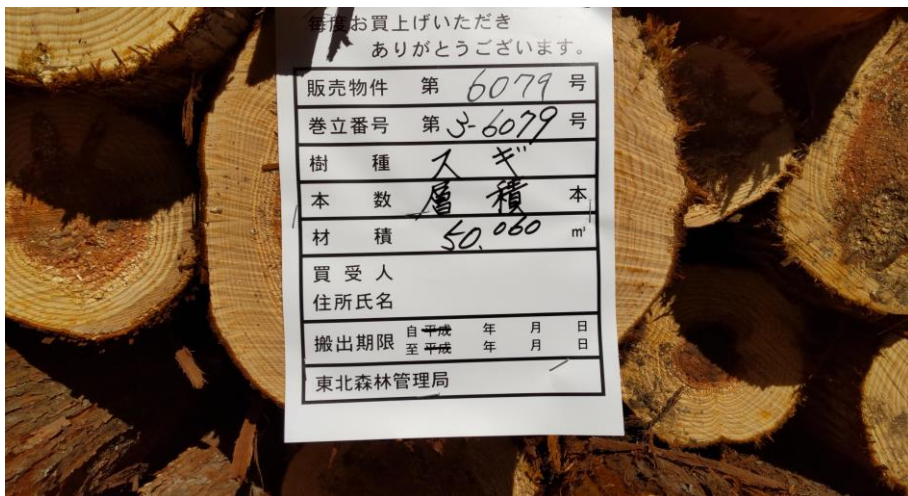 毎度お買上げいただき
ありがとうございます。
販売物件 第 6079 号
巻立番号 第 3-6079 号
樹種 スギ
本数 層積 本
材積 50.060 m³
買受人
住所氏名
搬出期限 自 平成 年 月 日
至 平成 年 月 日
東北森林管理局